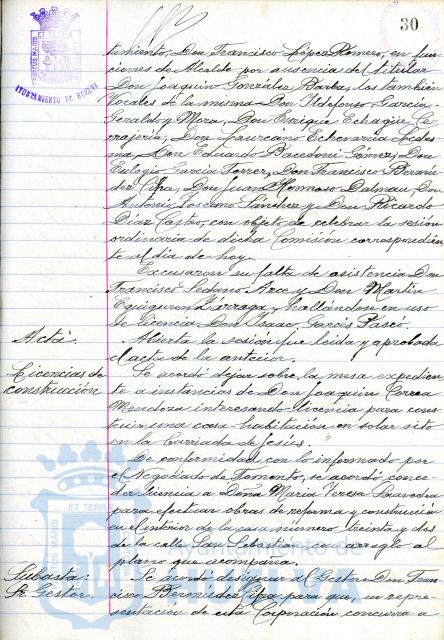 30
AYUNTAMIENTO DE HUELVA
tamiento, Don Francisco López Romero, en fun-
ciones de Alcalde por ausencia del titular
Don Joaquin Gonzalez Barba, los también
Vocales de la misma Don Ildefonso Garcia
Geraldo y Mora, Don Enrique Echagüe Co-
rrajeria, Don Laureano Echevarria Ledes-
ma, Don Eduardo Bacedoni Gómez, Don
Eulogio Garcia Ferrer, Don Francisco Bermú-
dez Cifra, Don Juan Hermoso Dalmau, Don
Antonio Toscano Sánchez y Don Ricardo
Díaz Castro, con objeto de celebrar la sesión
ordinaria de dicha Comisión correspondien-
te al dia de hoy.
Excusaron su falta de asistencia Don
Francisco Sedano Arce y Don Martin
Eguiguren Lárraga, hallándose en uso
de licencia Don Isaac Garcés Pascó.
Acta. Abierta la sesión fue leida y aprobada
el acta de la anterior.
Licencias de Se acordó dejar sobre la mesa expedien-
construcción te a instancias de Don Joaquin Correa
Mendoza interesando licencia para cons-
truir una casa-habitación en solar sito
en la barriada de Jesús.
De conformidad con lo informado por
el Negociado de Fomento, se acordó conce-
der licencia a Doña Maria Teresa
para efectuar obras de reforma y construcción
en el interior de la casa número treinta y dos
de la calle San Sebastián con arreglo al
plano que acompaña.
Subasta: Se acordó designar al Gestor Don Fran-
Sr. Gestor. cisco Bermúdez Cifra para que, en repre-
sentación de esta Corporación concurra a
Ayuntamiento de
HUELVA